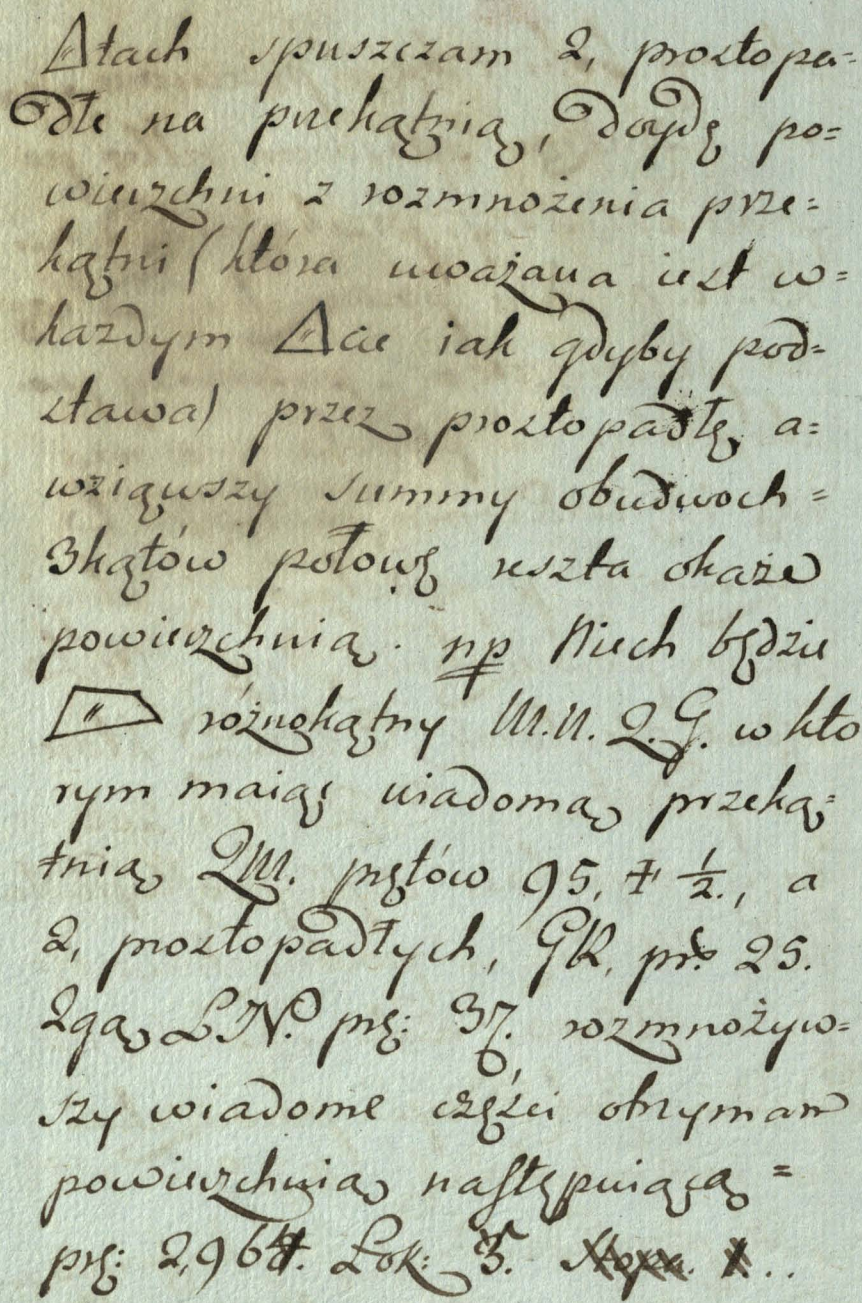 △łach spuszczam 2, prostopa=
dłe na przekątnią, doydę po=
wierzchni z rozmnożenia prze=
kątni (która uważana iest w=
kazdym △cie iak gdyby pod=
stawa) przez prostopadłę, a=
wziąwszy summy obudwoch=
3kątów połowę reszta okaże
powierzchnią. np Niech będzie
różnokątny M.N.Q.G. w któ
rym maiąc wiadomą przeką=
tnią QM. prętów 95, + 1/2., a
2, prostopadłych, GR, pr: 25.
2gą LN. prę: 37. rozmnożyw=
szy wiadome części otrzymam
powierzchnią następuiącą=
prę: 2,964. Łok: 3.